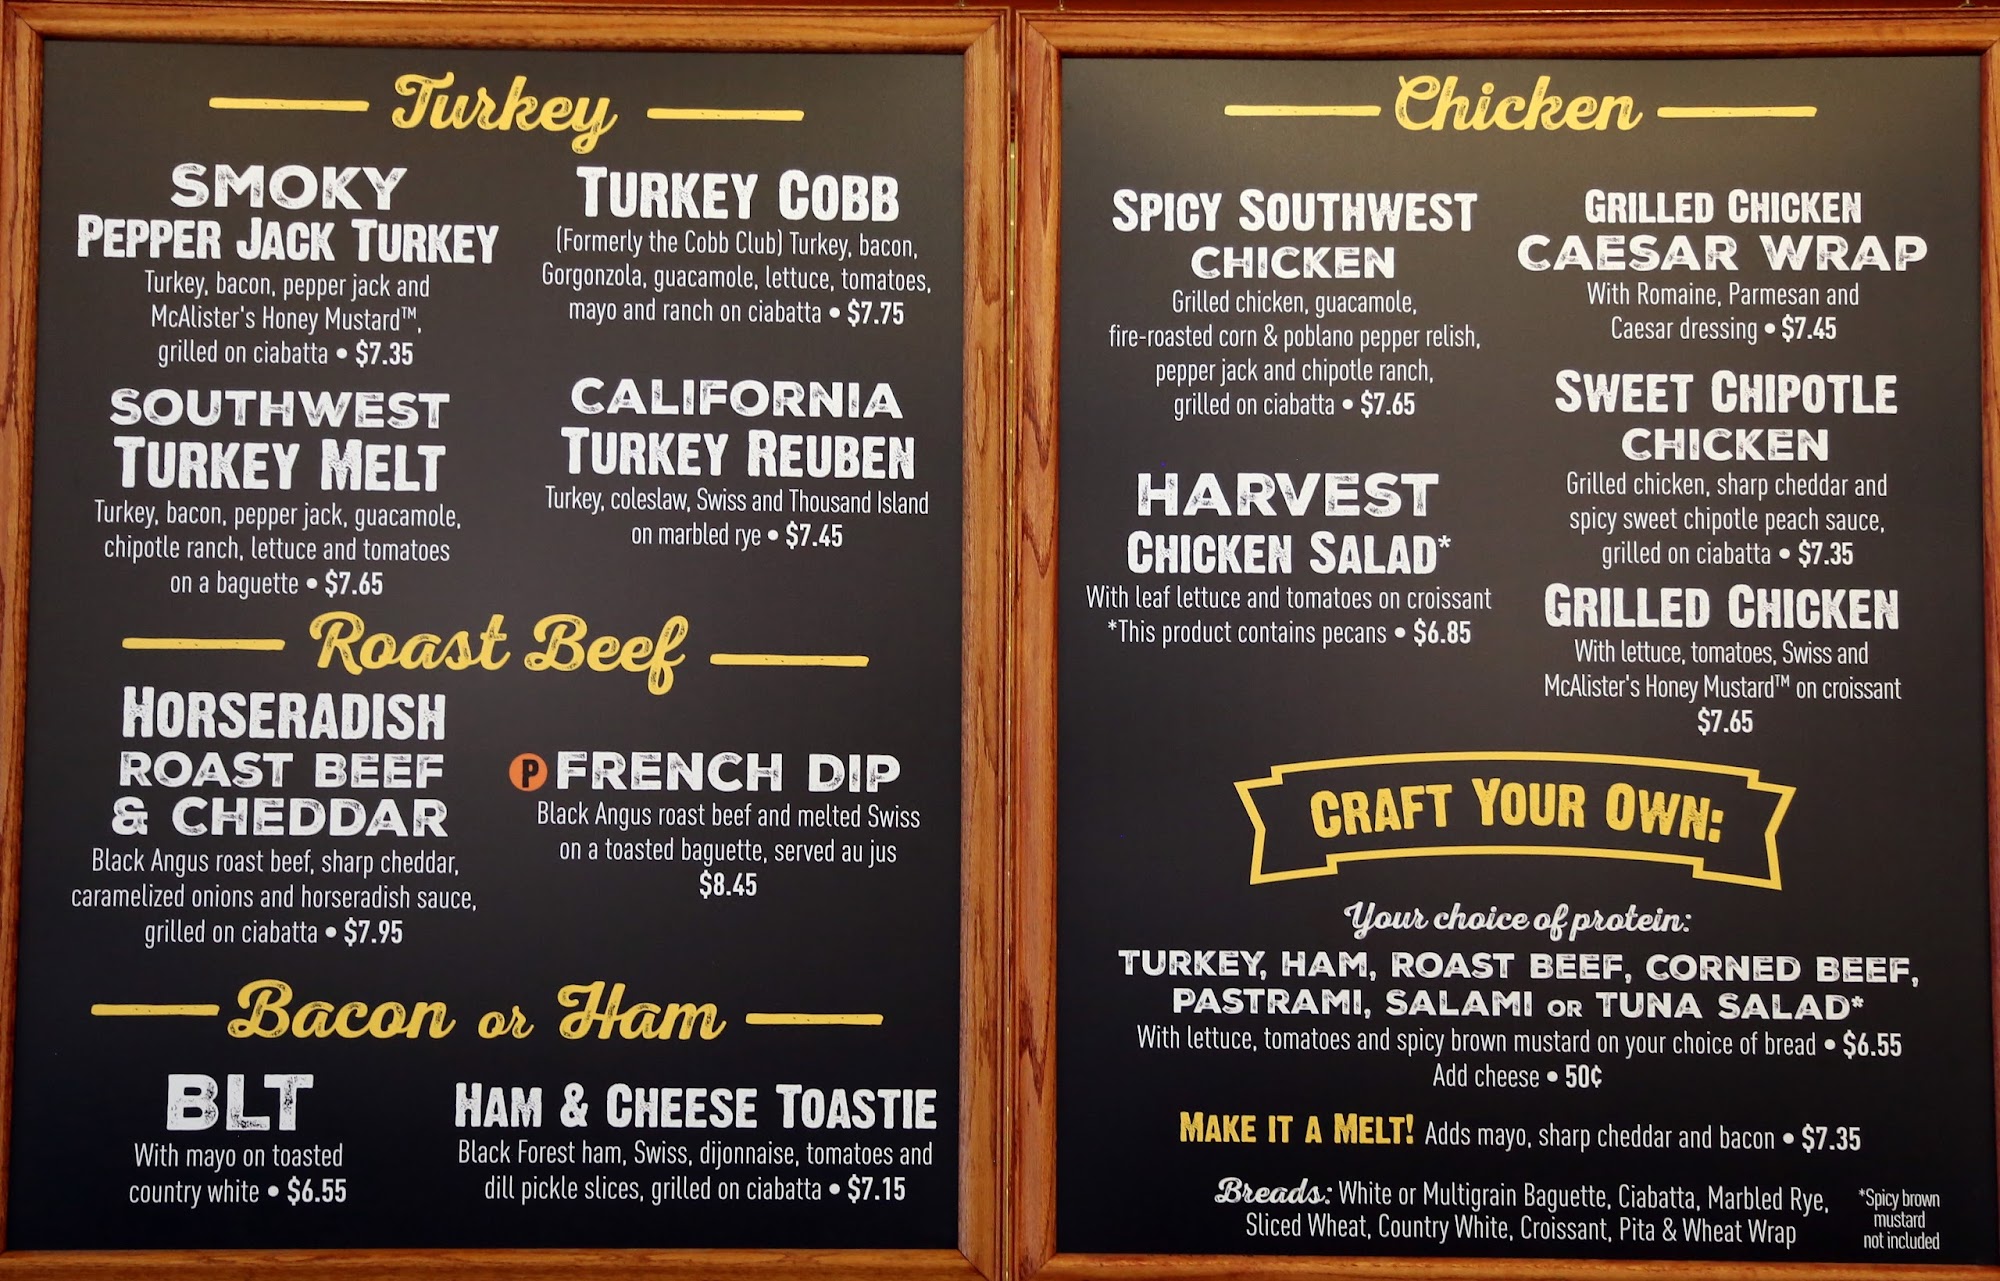 Turkey
SMOKY
PEPPER JACK TURKEY
Turkey, bacon, pepper jack and
McAlister's Honey Mustard™,
grilled on ciabatta • $7.35
TURKEY COBB
(Formerly the Cobb Club) Turkey, bacon,
Gorgonzola, guacamole, lettuce, tomatoes,
mayo and ranch on ciabatta • $7.75
SOUTHWEST
TURKEY MELT
Turkey, bacon, pepper jack, guacamole,
chipotle ranch, lettuce and tomatoes
on a baguette • $7.65
CALIFORNIA
TURKEY REUBEN
Turkey, coleslaw, Swiss and Thousand Island
on marbled rye • $7.45
Roast Beef
HORSERADISH
ROAST BEEF
& CHEDDAR
Black Angus roast beef, sharp cheddar,
caramelized onions and horseradish sauce,
grilled on ciabatta • $7.95
P FRENCH DIP
Black Angus roast beef and melted Swiss
on a toasted baguette, served au jus
$8.45
Bacon or Ham
BLT
With mayo on toasted
country white • $6.55
HAM & CHEESE TOASTIE
Black Forest ham, Swiss, dijonnaise, tomatoes and
dill pickle slices, grilled on ciabatta • $7.15
Chicken
SPICY SOUTHWEST
CHICKEN
Grilled chicken, guacamole,
fire-roasted corn & poblano pepper relish,
pepper jack and chipotle ranch,
grilled on ciabatta • $7.65
GRILLED CHICKEN
CAESAR WRAP
With Romaine, Parmesan and
Caesar dressing • $7.45
HARVEST
CHICKEN SALAD*
With leaf lettuce and tomatoes on croissant
*This product contains pecans • $6.85
SWEET CHIPOTLE
CHICKEN
Grilled chicken, sharp cheddar and
spicy sweet chipotle peach sauce,
grilled on ciabatta • $7.35
GRILLED CHICKEN
With lettuce, tomatoes, Swiss and
McAlister's Honey Mustard™ on croissant
$7.65
CRAFT YOUR OWN:
Your choice of protein:
TURKEY, HAM, ROAST BEEF, CORNED BEEF,
PASTRAMI, SALAMI OR TUNA SALAD*
With lettuce, tomatoes and spicy brown mustard on your choice of bread • $6.55
Add cheese • 50¢
MAKE IT A MELT! Adds mayo, sharp cheddar and bacon • $7.35
Breads: White or Multigrain Baguette, Ciabatta, Marbled Rye,
Sliced Wheat, Country White, Croissant, Pita & Wheat Wrap
*Spicy brown
mustard
not included